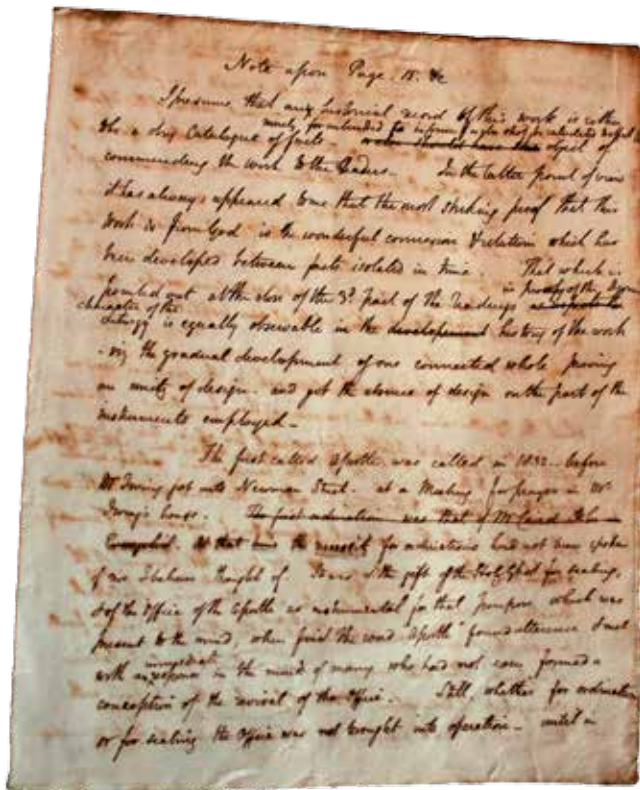 Note upon Page. 15. &c
I presume that any historical record of this work is rather
merely for intended to inform rather than calculated
the a dry Catalogue of facts - object of
commending the work to the Readers. In the latter point of view
it has always appeared to me that the most striking proof that this
work is from God is the wonderful connexion & relation which has
been developed between facts isolated in time. That which is
in proof of the
pointed out at the close of the 3d. part of the Readings
character of the
liturgy is equally observable in the development history of the work
- viz the gradual development of one connected whole proving
an unity of design - and yet the absence of design on the part of the
instruments employed -
The first called apostle was called in 1832 - before
Mr Irving got into Newman Street - at a Meeting for prayer in Mr
Irving's house. The first ordination was that of Mr Caird
Evangelist. At that the for ordinations had not been spoken
of nor I believe thought of. It was the gift of the Holy Ghost for sealing,
& of the office of the apostle as instrumental for that purpose, which was
present to the mind, when first the word apostle found utterance & met
immediate
with response in the mind of many who had not even formed a
conception of the revival of the office. Still, whether for ordination
or for sealing the Office was not brought into operation - until a